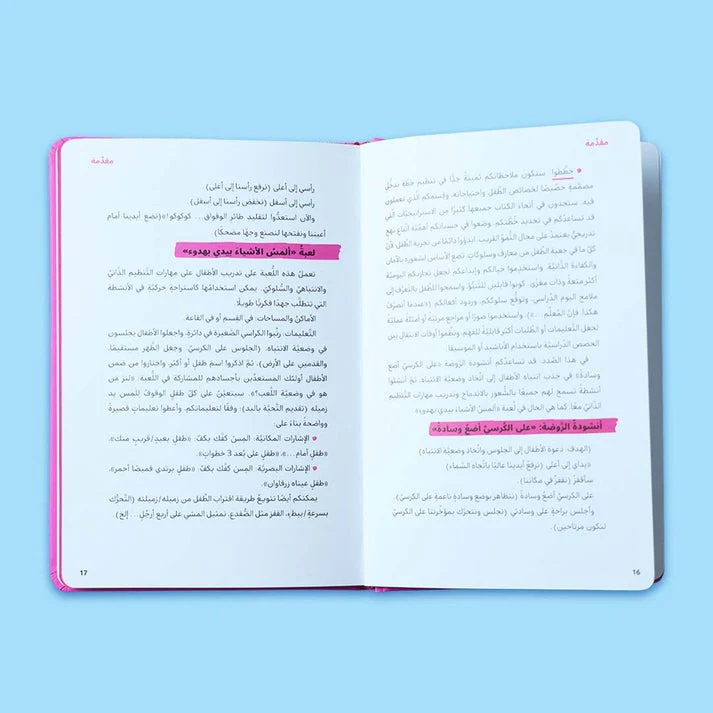 مقدّمة
خطِّطوا ستكون ملاحظاتكم ثمينة جدًّا في تنظيم خطّة تدخُّل
مصمّمة خصّيصًا لخصائص الطّفل واحتياجاته، وقِسمكم الّذي تعملون
فيه. ستجدون في أنحاء الكتاب جميعها كثيرًا من الاستراتيجيّات الّتي
قد تساعدكم في تحديد خُطّتكم. وضعوا في حسبانكم أهمّيّة اتّباع نهج
تدريجيٍّ يعتمد على مجال النّموّ القريب. ابدؤوا دائمًا من تجربة الطّفل لأنّ
كلّ ما في جعبة الطّفل من معارف وسلوكيّات، تضع أساس لشعوره بالأمان
والكفاءة الذّاتيّة. واستخدموا خيالكم وإبداعكم لجعل تجاربكم اليوميّة
أكثر متعة وذات مغزى. كونوا قابلين للتّنبّؤ، واسمحوا للطّفل بالتّعرّف إلى
ملامح اليوم الدّراسي، وتوقُّع سلوككم، وردود أفعالكم («عندما أتصرّف
هكذا، فإنّ المُعلّم ...»). واستخدموا صورًا أو مراجع مرئيّة أو أمثلة عمليّة
لجعل التّعليمات أو الطّلبات أكثر قابليّة للفهم، ونظّموا أوقات الانتقال بين
الحصص الدّراسيّة باستخدام الأناشيد أو الموسيقا.
في هذا الصّدد، قد تساعدكم أنشودة الرّوضة «على الكرسيّ أضع
وسادة» في جذب انتباه الأطفال إلى اتّخاذ وضعيّة الانتباه. ثمّ أنشئوا
أنشطة تسمح لهم جميعًا بالشّعور بالاندماج وتدريب مهارات التّنظيم
الذّاتيّ معًا، كما هي الحال في لعبة «ألمسُ الأشياءَ بيدي بهدوء»
أنشودة الرَّوضة: «على الكرسيِّ أضعُ وسادة»
(الهدف: دعوة الأطفال إلى الجلوس واتّخاذ وضعيّة الانتباه)
«يداي إلى أعلى (نرفع أيدينا عاليًا باتّجاه السّماء)
سأقفزُ (نقفز في مكاننا)
على الكرسيّ أضعُ وسادة (نتظاهر بوضع وسادةٍ ناعمةٍ على الكرسيّ)
وأجلس براحةٍ على وسادتي (نجلس ونتحرّك بمؤخّرتنا على الكرسيّ
لنكون مرتاحين).
16
مقدّمة
رأسي إلى أعلى (نرفع رأسنا إلى أعلى)
رأسي إلى أسفل (نخفض رأسنا إلى أسفل)
والآن استعدّوا لتقليد طائر الوقواق... كوكوكو!» (نضع أيدينا أمام
أعيننا ونفتحها لنصنع وجهًا مضحكًا)
لعبةُ «ألمسُ الأشياءَ بيدي بهدوء»
تعملُ هذه اللُّعبة على تدريب الأطفال على مهارات التّنظيم الذّاتيّ
والانتباهيّ والسّلوكيّ. يمكن استخدامها كاستراحةٍ حركيّةٍ في الأنشطة
التي تتطلّب جهدًا فكريًّا طويلًا.
الأماكنُ والمساحات: في القسم أو في القاعة.
التّعليمات: رتّبوا الكراسي الصّغيرة في دائرةٍ. واجعلوا الأطفال يجلسون
في وضعيّة الانتباه. (الجلوس على الكرسيّ، وجعل الظّهر مستقيمًا،
والقدمين على الأرض)، ثمّ اذكروا اسمَ طفلٍ أو أكثر، واختاروا من ضمن
الأطفال أولئك المستعدّين بأجسادهم للمشاركة في اللّعبة: «لنرَ من
هو في وضعيّة اللّعب؟». سيتعيّن على كلّ طفلٍ الوقوفُ للمس يد
زميله (تقديم التّحيّة باليد)؛ وفقًا لتعليماتكم. وأعطوا تعليماتٍ قصيرةً
وواضحةً بناءً على:
الإشارات المكانيّة: المِسن كفّك بكفّ: «طفلٍ بعيدٍ/قريبٍ منك»،
«طفلٍ أمام...»، «طفلٍ على بُعد 3 خطواتٍ».
الإشارات البصريّة: المِسن كفّك بكفّ: «طفلٍ يرتدي قميصًا أحمر»،
«طفلٍ عيناه زرقاوان».
يمكنكم أيضًا تنويعُ طريقة اقتراب الطّفل من زميله/زميلته (التّحرّك
بسرعةٍ/ببطءٍ، القفز مثل الضّفدع، تمثيل المشي على أربع أرجُلٍ... إلخ).
17